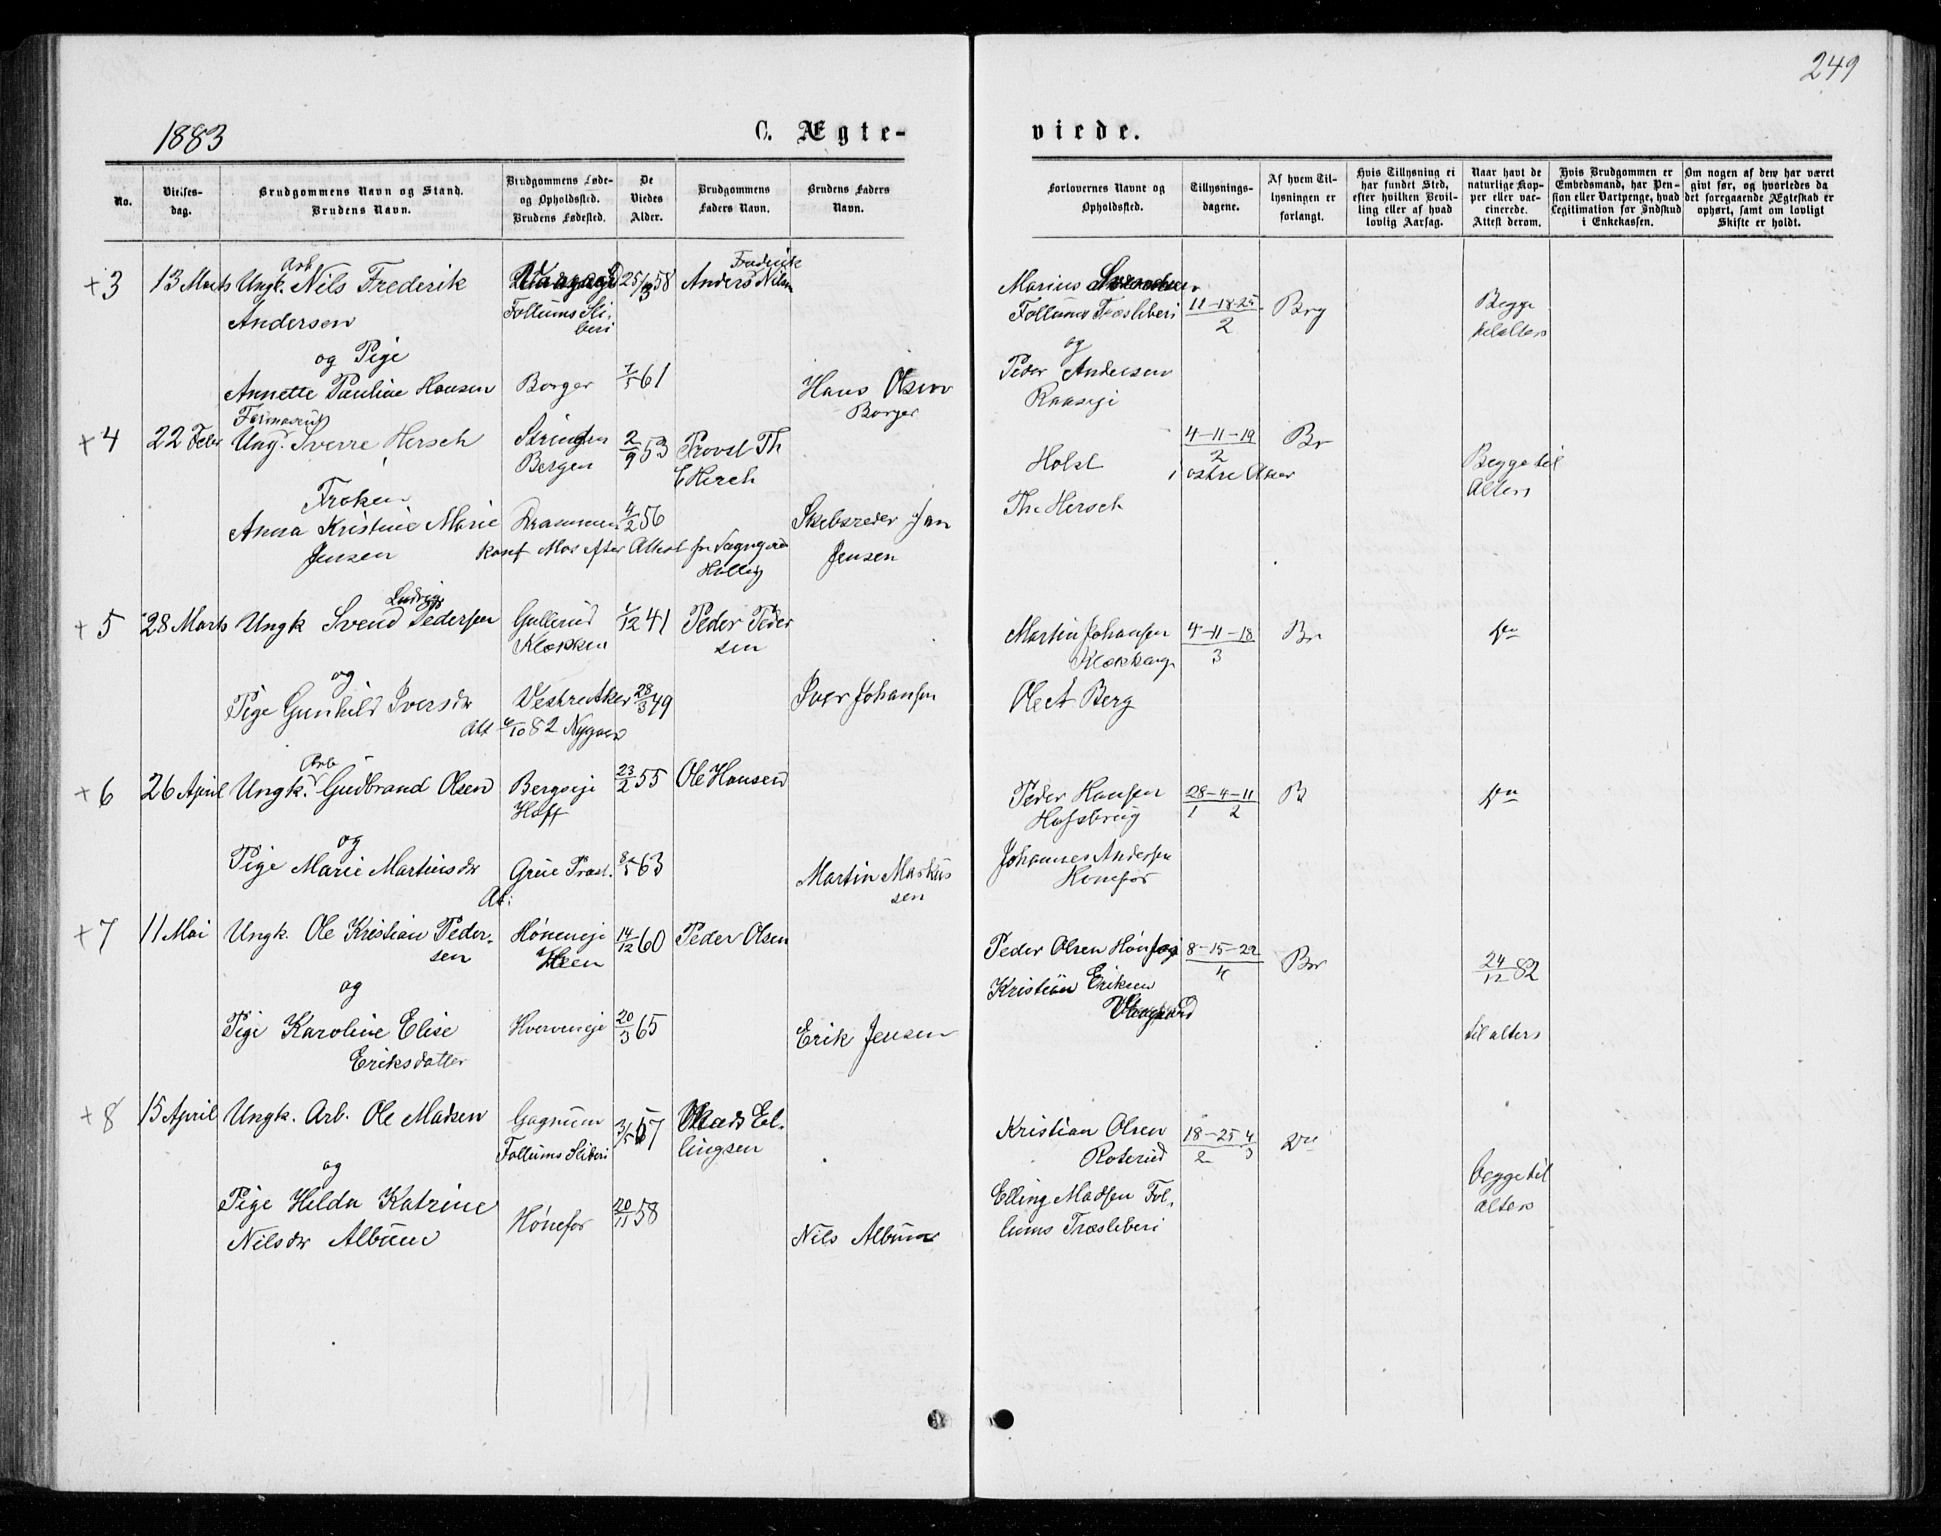 249
1883
C. Ægte-
viede.
No.
Vielses-
dag.
Brudgommens Navn og Stand.
Brudens Navn.
Brudgommens Føde-
og Opholdssted.
Brudens Fødested.
De
Viedes
Alder.
Brudgommens
Faders Navn.
Brudens Faders
Navn.
Forlovernes Navne og
Opholdssted.
Tillysnings-
dagene.
Af hvem Til-
lysningen er
forlangt.
Hvis Tillysning ei
har fundet Sted,
efter hvilken Bevil-
ling eller af hvad
lovlig Aarsag.
Naar havt de
naturlige Kop-
per eller vac-
cinerede.
Attest derom.
Hvis Brudgommen er
Embedsmand, har Pen-
sion eller Vartpenge, hvad
Legitimation for Indskud
i Enkekassen.
Om nogen af dem har været
givt før, og hvorledes da
det foregaaende Ægteskab er
ophørt, samt om lovligt
Skifte er holdt.
+3 13 Marts Ungk. Arb. Nils Frederik
Andersen
Follums Sli-
beri
25/3 58
Anders Frederik Nilsen
Marius
Follums Træsliberi
11-18-25
2
Brg
Begge
til alters
og Pige
Annette Pauline Hansen
Borger
7/5 61
Hans Olsen
Borger
og
Peder Andersen
+4 22 Febr Ung. Sverre Hersch
Bergen
2/9 53
Provst Th
Holst
4-11-19
2
i østre Aker
Br
Begge til
Alters
Frøken
Anna Kristine Marie
Jensen
Drammen
4/2 56
Skibsreder Jan
Jensen
Th. Hersch
Konf Mos efter Attest fra Sogneprest
+5 28 Marts Ungk Svend Ludvig Pedersen
Gullerud
Klækken
1/12 41
Peder Peder
sen
Martin Johansen
4-11-18
3
Br
og
Pige Gunhild Iversdr
Vestre Aker
28/3 49
Iver Johansen
Ole A Berg
Att 6/10 82
+6 26 April Ungk. Arb Gudbrand Olsen
Bergseje
Hoff
23/2 55
Ole Hansen
Peder Hansen
Hofsbrug
28-4-11
1 2
B
og
Pige Marie Martinsdr
Grue Præst.
8/5 63
Martin Markus
sen
Johannes Andersen
Hønefos
At:
+7 11 Mai Ungk. Ole Kristian Peder-
sen
Høneneje
Heen
14/12 60
Peder Olsen
Peder Olsen
8-15-22
4
Br
24/12 82
og
Pige Karoline Elise
Eriksdatter
Hverveneje
20/3 65
Erik Jensen
Kristian Eriksen
til alters
+8 15 April Ungk. Arb. Ole Madsen
Gagnum
Follums Sliberi
3/5 57
Mads El-
lingsen
Kristian Olsen
Roterud
18-25 4
2 3
begge til
alters
og
Pige Hilda Katrine
Nilsdr Album
Hønefos
20/11 58
Nils Album
Elling Madsen Fol-
lums Træsliberi